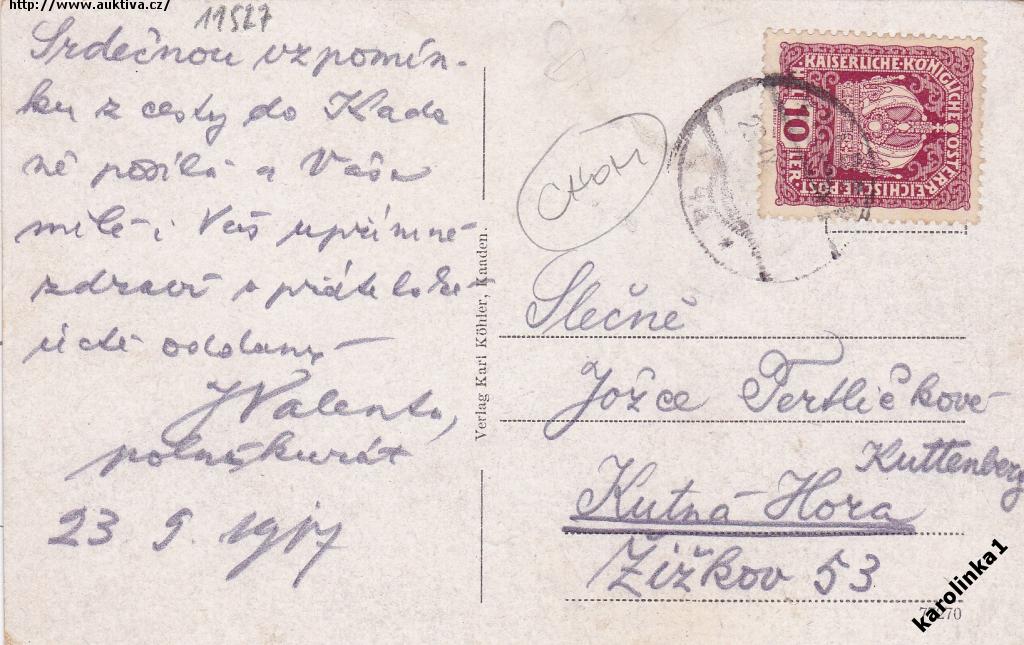 http://www.auktiva.cz/
11527
Srdečnou vzpomín-
ku z cesty do Kada
ně posílá a Vaše
milé i Vás upřímně
zdraví v přátelské
úctě oddaný
JValenta,
polní kurát
23 9. 1917
Verlag Karl Köhler, Kaaden.
CHOM
KAISERLICHE KÖNIGLICHE ÖSTERREICHISCHE POST
HELLER
10
Slečně
Jožce Pertličkové
Kuttenberg
Kutná-Hora
Žižkov 53
karolinka1